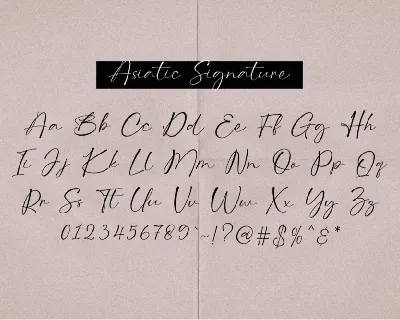 Asiatic Signature
Aa Bb Cc Dd Ee Ff Gg Hh
Ii Jj Kk Ll Mm Nn Oo Pp Qq
Rr Ss Tt Uu Vv Ww Xx Yy Zz
0123456789`~!?@#$%^&*